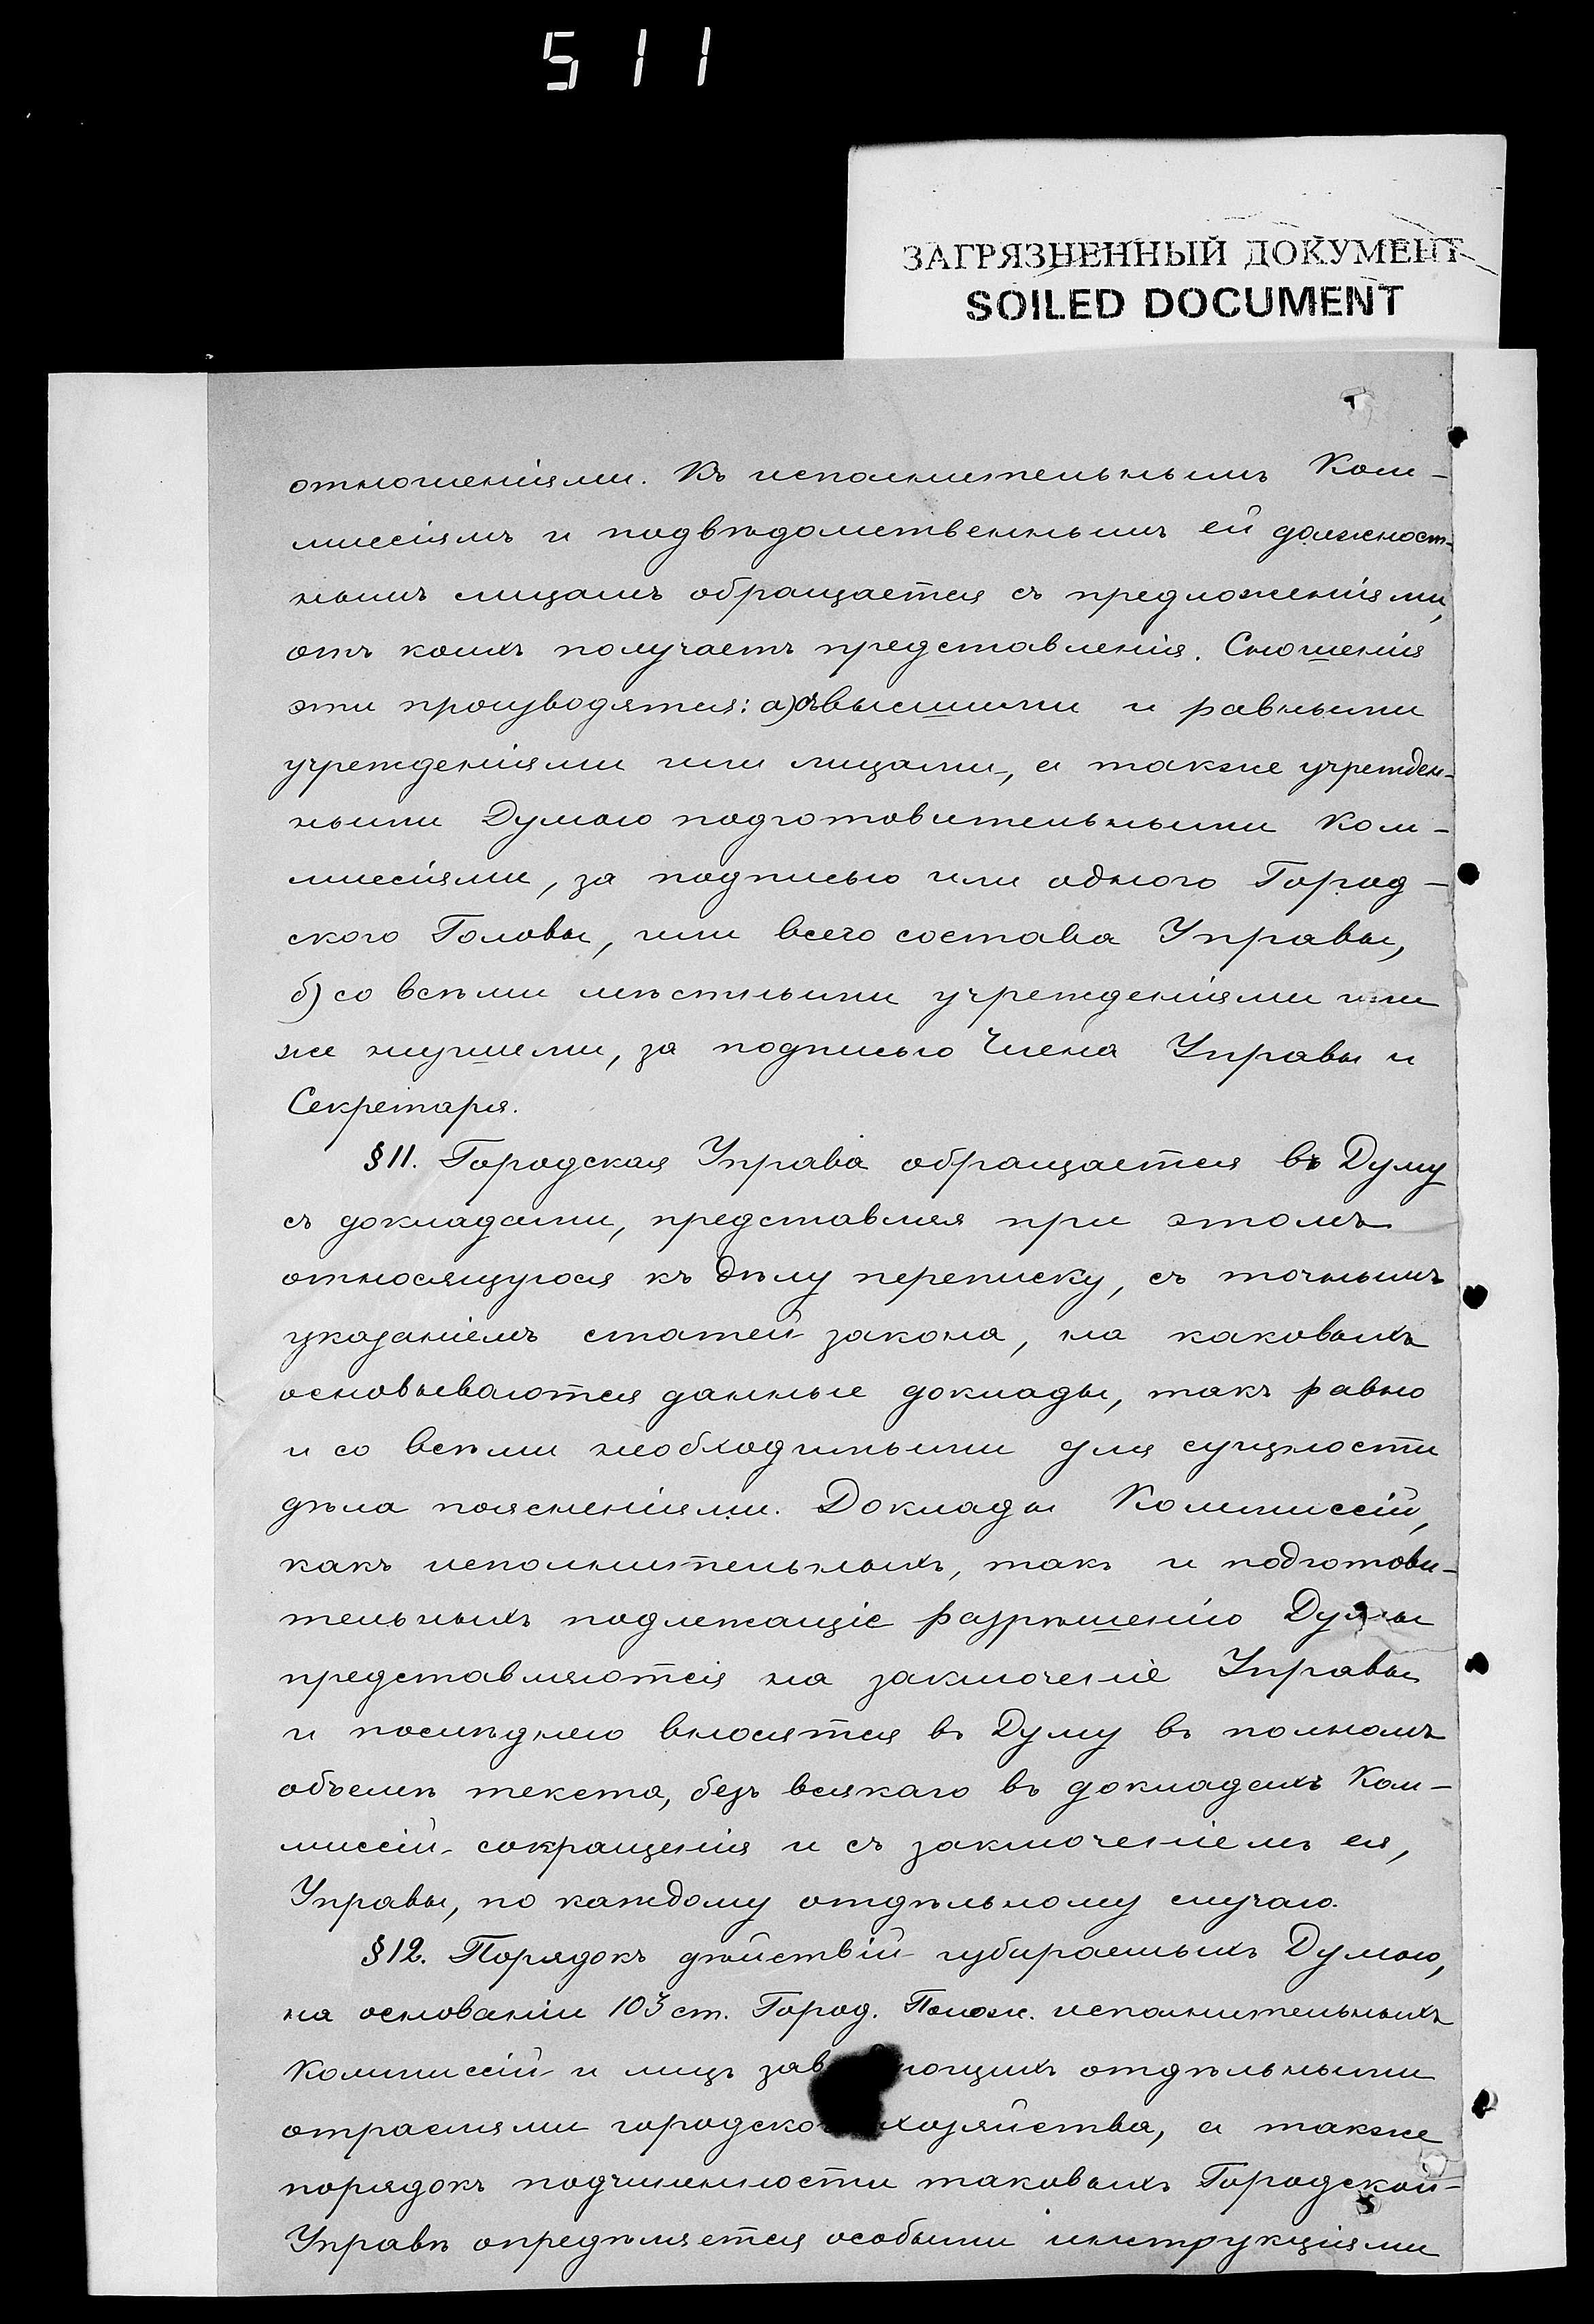 511
ЗАГРЯЗНЕННЫЙ ДОКУМЕНТ
SOILED DOCUMENT
отношеніями. Къ исполнительнымъ Ком-
миссіямъ и подвѣдомственнымъ ей должност-
нымъ лицамъ обращается съ предложеніями,
отъ коихъ получаетъ представленія. Сношенія
эти производятся: а) съ высшими и равными
учрежденіями или лицами, а также учрежден-
ными Думою подготовительными Ком-
миссіями, за подписью или одного Город-
ского Головы, или всего состава Управы,
б) со всѣми мѣстными учрежденіями или
же низшими, за подписью Члена Управы и
Секретаря.
§11. Городская Управа обращается въ Думу
съ докладами, представляя при этомъ
относящуюся къ дѣлу переписку, съ точнымъ
указаніемъ статей закона, на каковыхъ
основываются данные доклады, такъ равно
и со всѣми необходимыми для сущности
дѣла поясненіями. Доклады Коммиссій,
какъ исполнительныхъ, такъ и подготови-
тельныхъ подлежащіе разрѣшенію Думы
представляются на заключеніе Управы
и послѣднею вносятся въ Думу въ полномъ
объемѣ текста, безъ всякаго въ докладахъ Ком-
миссій сокращенія и съ заключеніемъ ея,
Управы, по каждому отдѣльному случаю.
§12. Порядокъ дѣйствій избираемыхъ Думою,
на основаніи 103 ст. Город. Полож. исполнительныхъ
Коммиссій и лицъ зав ющихъ отдѣльными
отраслями городско хозяйства, а также
порядокъ подчиненности таковыхъ Городской
Управѣ опредѣляется особыми инструкціями